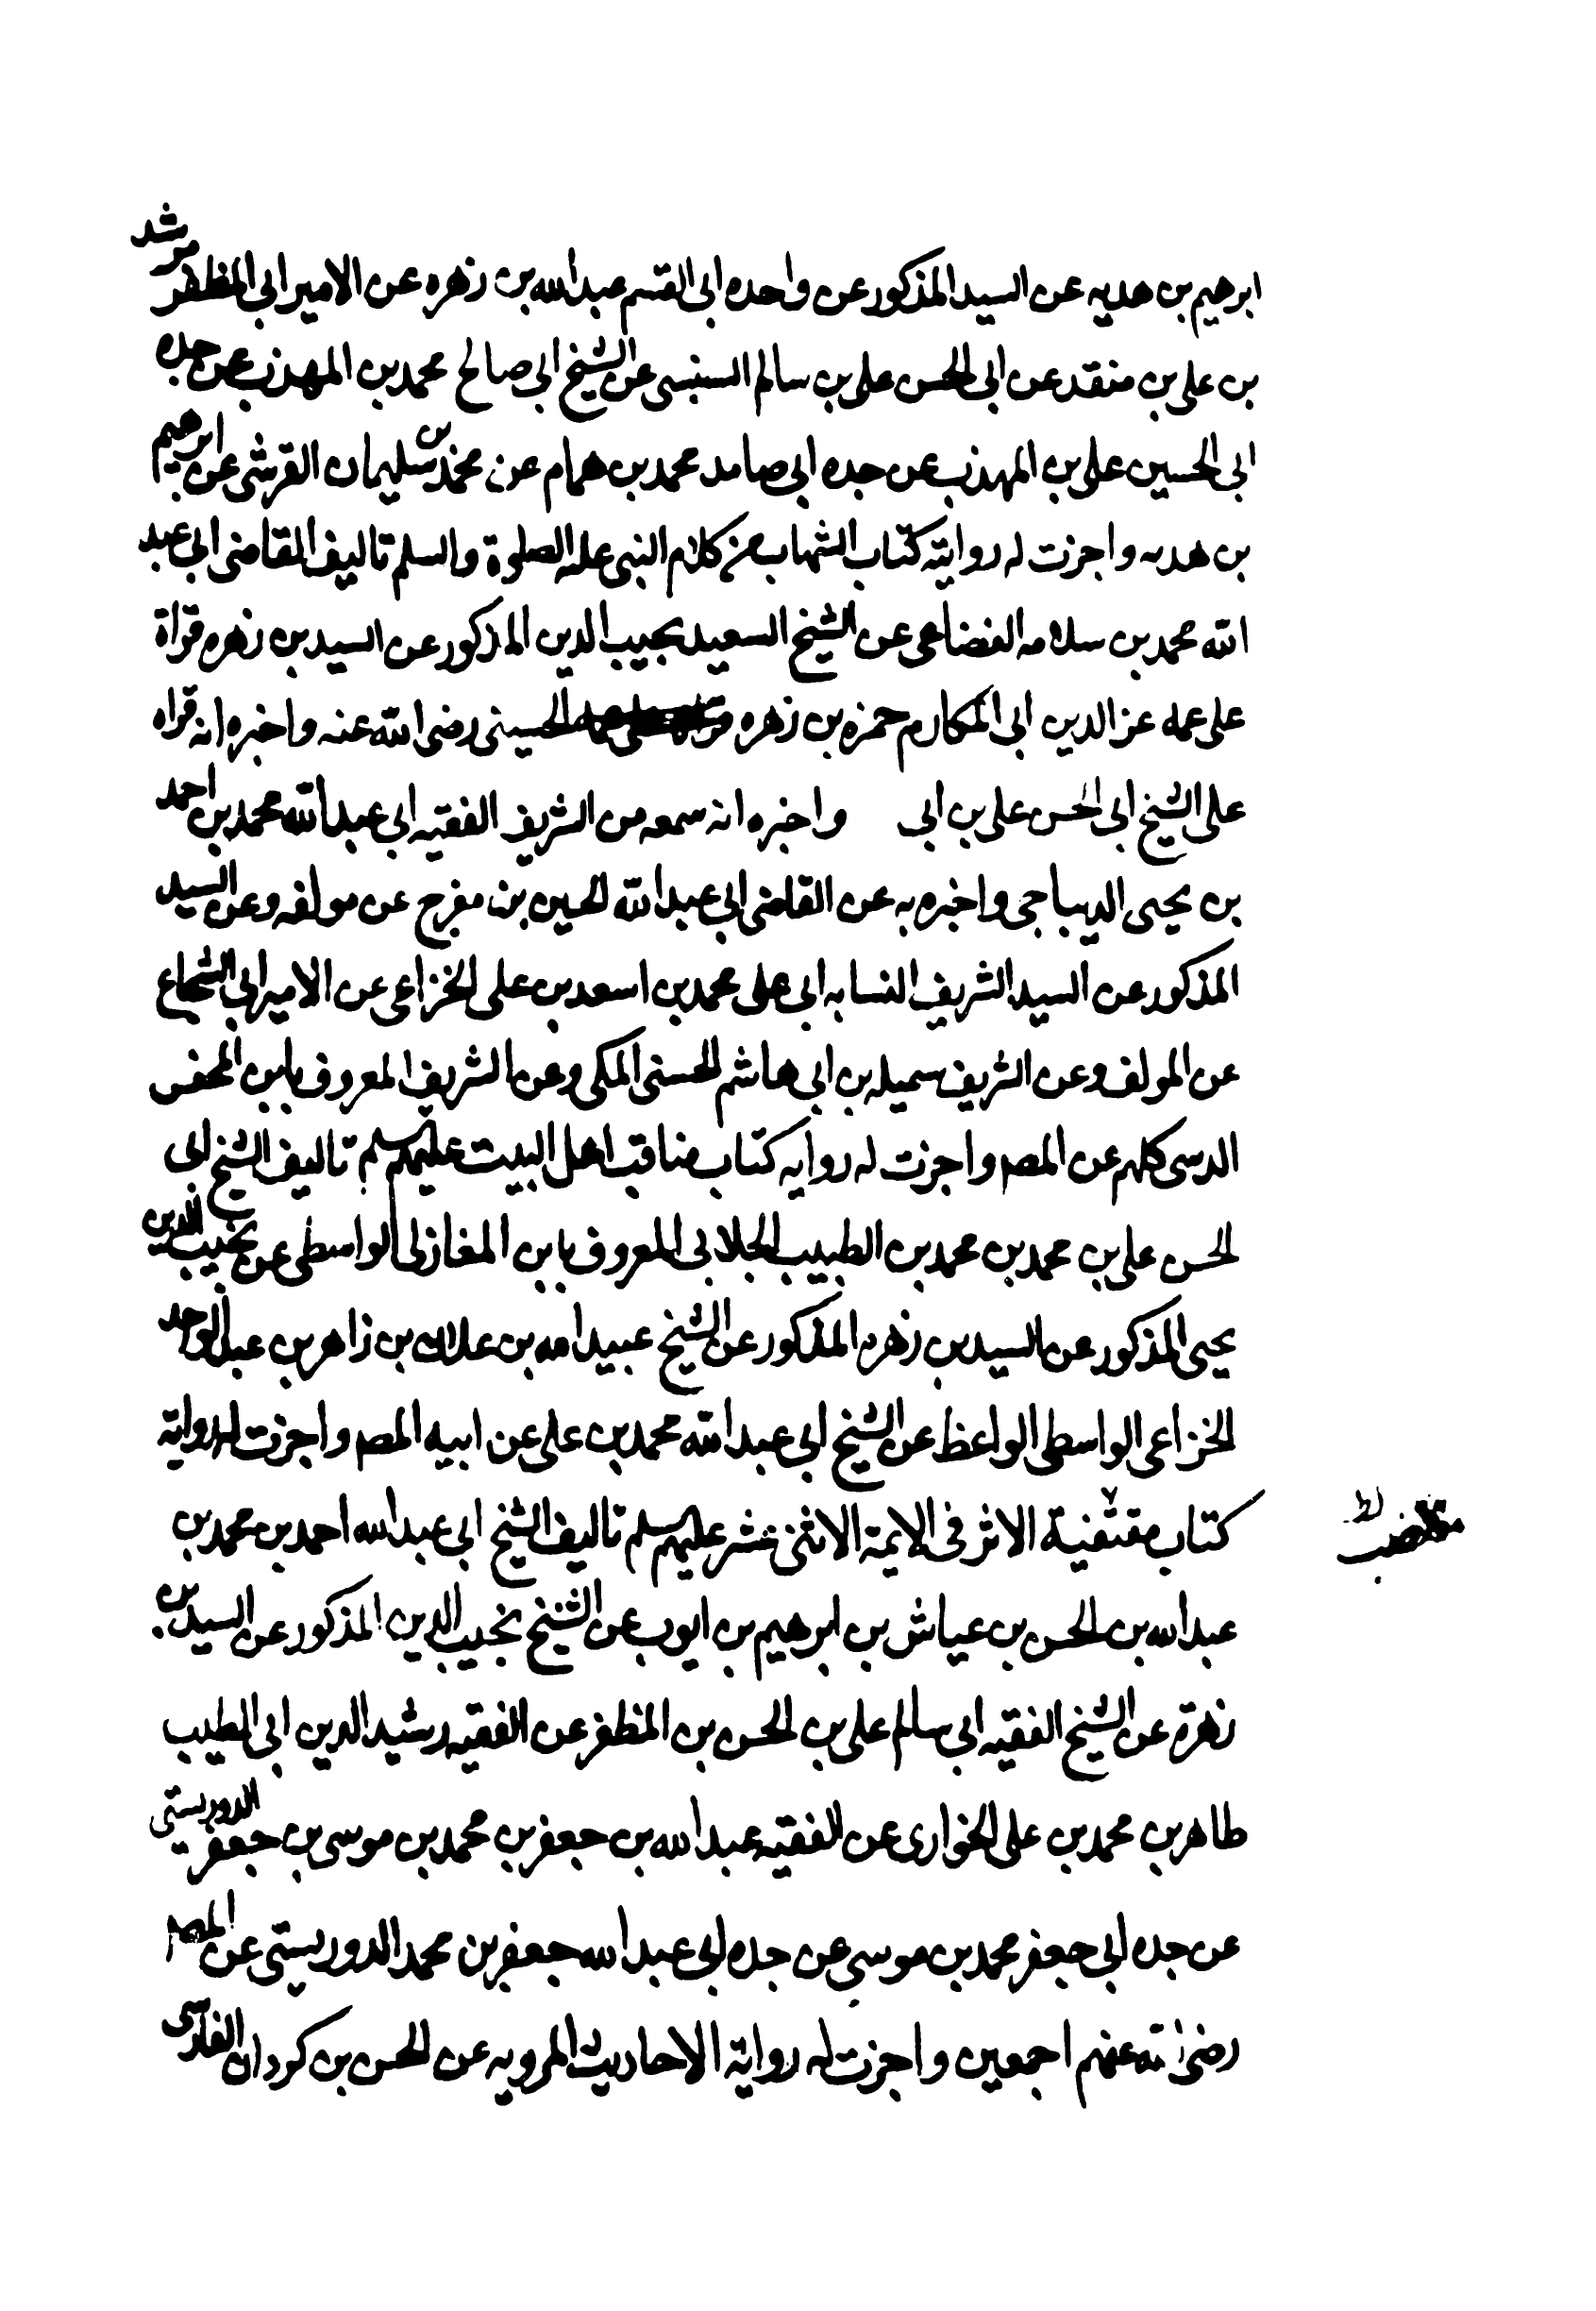 ابرهيم بن هديه عن السيد المذكور عن واحده ابى القسم عبد الله بن زهره عن الامير ابى المظفر مرشد
بن على بن منقد عن ابى الحسن على بن سالم السنبسى عن الشيخ ابى صالح محمد بن المهذب عن جده
ابى الحسين على بن المهذب عن جده ابى صامد محمد بن همام عن محمد بن سليمان القرشى عن ابرهيم
بن هدبه واجزت له رواية كتاب الشهاب من كلام النبى عليه الصلوة والسلم تاليف القاضى ابى عبد
الله محمد بن سلامه القضاعى عن الشيخ السعيد نجيب الدين المذكور عن السيد بن زهره قراة
على عمه عز الدين ابى المكارم حمزه بن زهره الحسينى رضى الله عنه واخبره انه قراه
على الشيخ ابى الحسن على بن ابى واخبره انه سمعه من الشريف الفقيه ابى عبد الله محمد بن احمد
بن يحيى الديباجى واخبره به عن القاضى ابى عبد الله الحسين بن مفرح عن مولفه وعن السيد
المذكور عن السيد الشريف النسابه ابى على محمد بن اسعد بن على الخزاعى عن الامير ابى الشجاع
عن المولف وعن الشريف سميله بن ابى هاشم الحسنى المكى وعن الشريف المعروف بابن
كلهم عن المص واجزت له روايه كتاب مناقب اهل البيت عليهم السلم تاليف الشيخ ابى
الحسن على بن محمد بن محمد بن الطبيب الجلابى المعروف بابن المغازلى الواسطى عن نجيب الدين
يحيى المذكور عن السيد بن زهره المذكور عن الشيخ عبيد الله بن بن زاهر بن عبد الواحد
الخزاعى الواسطى الواعظ عن الشيخ ابى عبد الله محمد بن على عن ابيه المص واجزت له رواية
كتاب مقتفية الاثر فى الايمة الاثنى عشر عليهم السلم تاليف الشيخ ابى عبد الله احمد بن محمد بن
مقتضب
عبد الله بن الحسن بن عياش بن ابرهيم بن ايوب عن الشيخ نجيب الدين المذكور عن السيد بن
زهرة عن الشيخ الفقيه ابى سالم على بن الحسن بن المظفر عن الفقيه رشيد الدين ابى الطيب
طاهر بن محمد بن على الخوارى عن الفقيه عبد الله بن جعفر بن محمد بن موسى بن جعفر الدوريستى
عن جده ابى جعفر محمد بن موسى عن جده ابى عبد الله جعفر بن محمد الدوريستى عن المص
رضى الله عنهم اجمعين واجزت له رواية الاحاديث المرويه عن الحسن بن كردان الفارسى